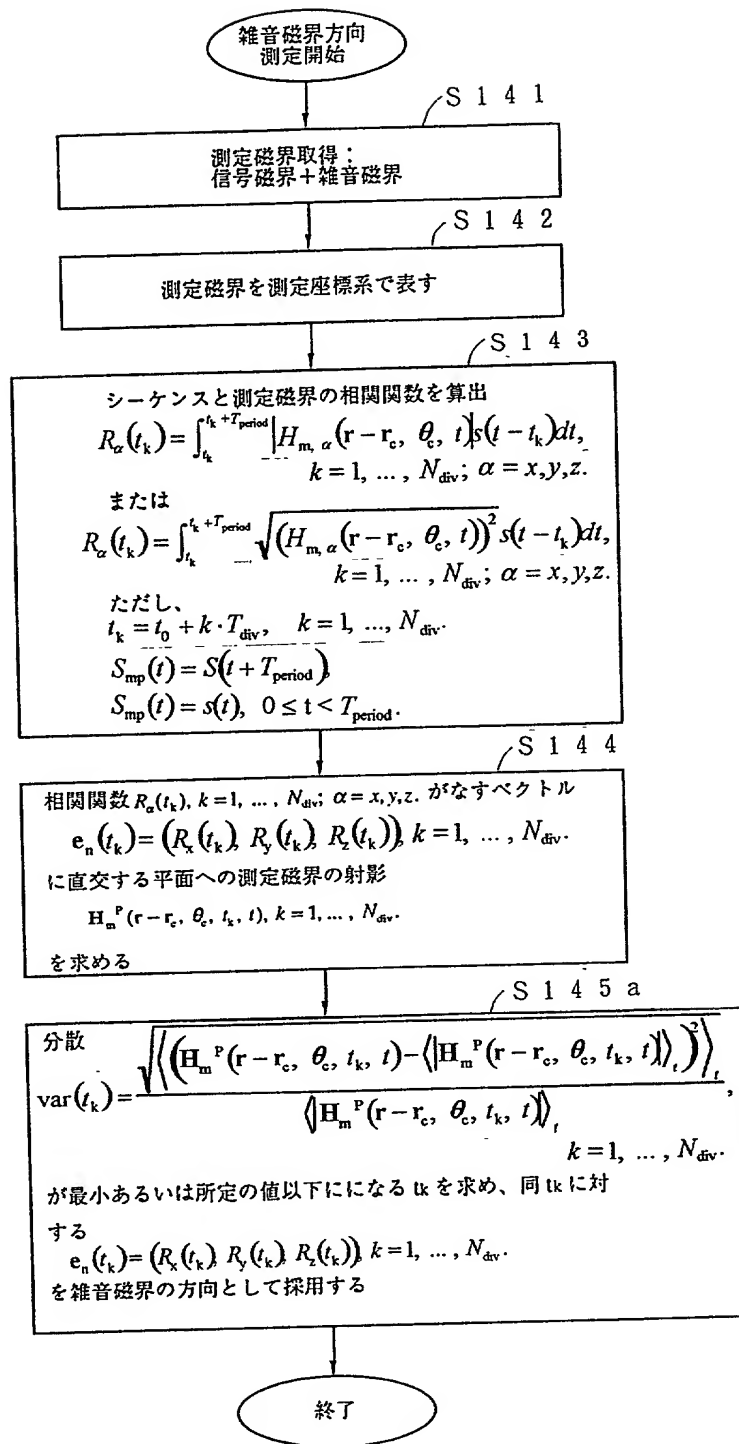 雑音磁界方向
測定開始
S 1 4 1
測定磁界取得：
信号磁界＋雑音磁界
S 1 4 2
測定磁界を測定座標系で表す
S 1 4 3
シーケンスと測定磁界の相関関数を算出
R_α(t_k) = ∫_{t_k}^{t_k + T_period} |H_{m, α}(r − r_c, θ_c, t)| s(t − t_k)dt,
k = 1, ... , N_div; α = x,y,z.
または
R_α(t_k) = ∫_{t_k}^{t_k + T_period} √(H_{m, α}(r − r_c, θ_c, t))² s(t − t_k)dt,
k = 1, ... , N_div; α = x,y,z.
ただし、
t_k = t_0 + k · T_div, k = 1, ..., N_div.
S_mp(t) = S(t + T_period),
S_mp(t) = s(t), 0 ≤ t < T_period.
S 1 4 4
相関関数 R_α(t_k), k = 1, ... , N_div; α = x,y,z. がなすベクトル
e_n(t_k) = (R_x(t_k), R_y(t_k), R_z(t_k)), k = 1, ... , N_div.
に直交する平面への測定磁界の射影
H_m^P(r − r_c, θ_c, t_k, t), k = 1, ... , N_div.
を求める
S 1 4 5 a
分散
var(t_k) = √⟨(H_m^P(r − r_c, θ_c, t_k, t) − ⟨|H_m^P(r − r_c, θ_c, t_k, t)|⟩_t)²⟩_t / ⟨|H_m^P(r − r_c, θ_c, t_k, t)|⟩_t,
k = 1, ... , N_div.
が最小あるいは所定の値以下にになる tk を求め、同 tk に対
する
e_n(t_k) = (R_x(t_k), R_y(t_k), R_z(t_k)), k = 1, ... , N_div.
を雑音磁界の方向として採用する
終了